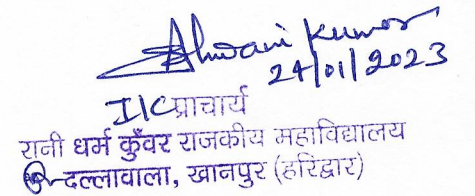 Ashwani Kumar
24/01/2023
I/C प्राचार्य
रानी धर्म कुँवर राजकीय महाविद्यालय
दल्लावाला, खानपुर (हरिद्वार)